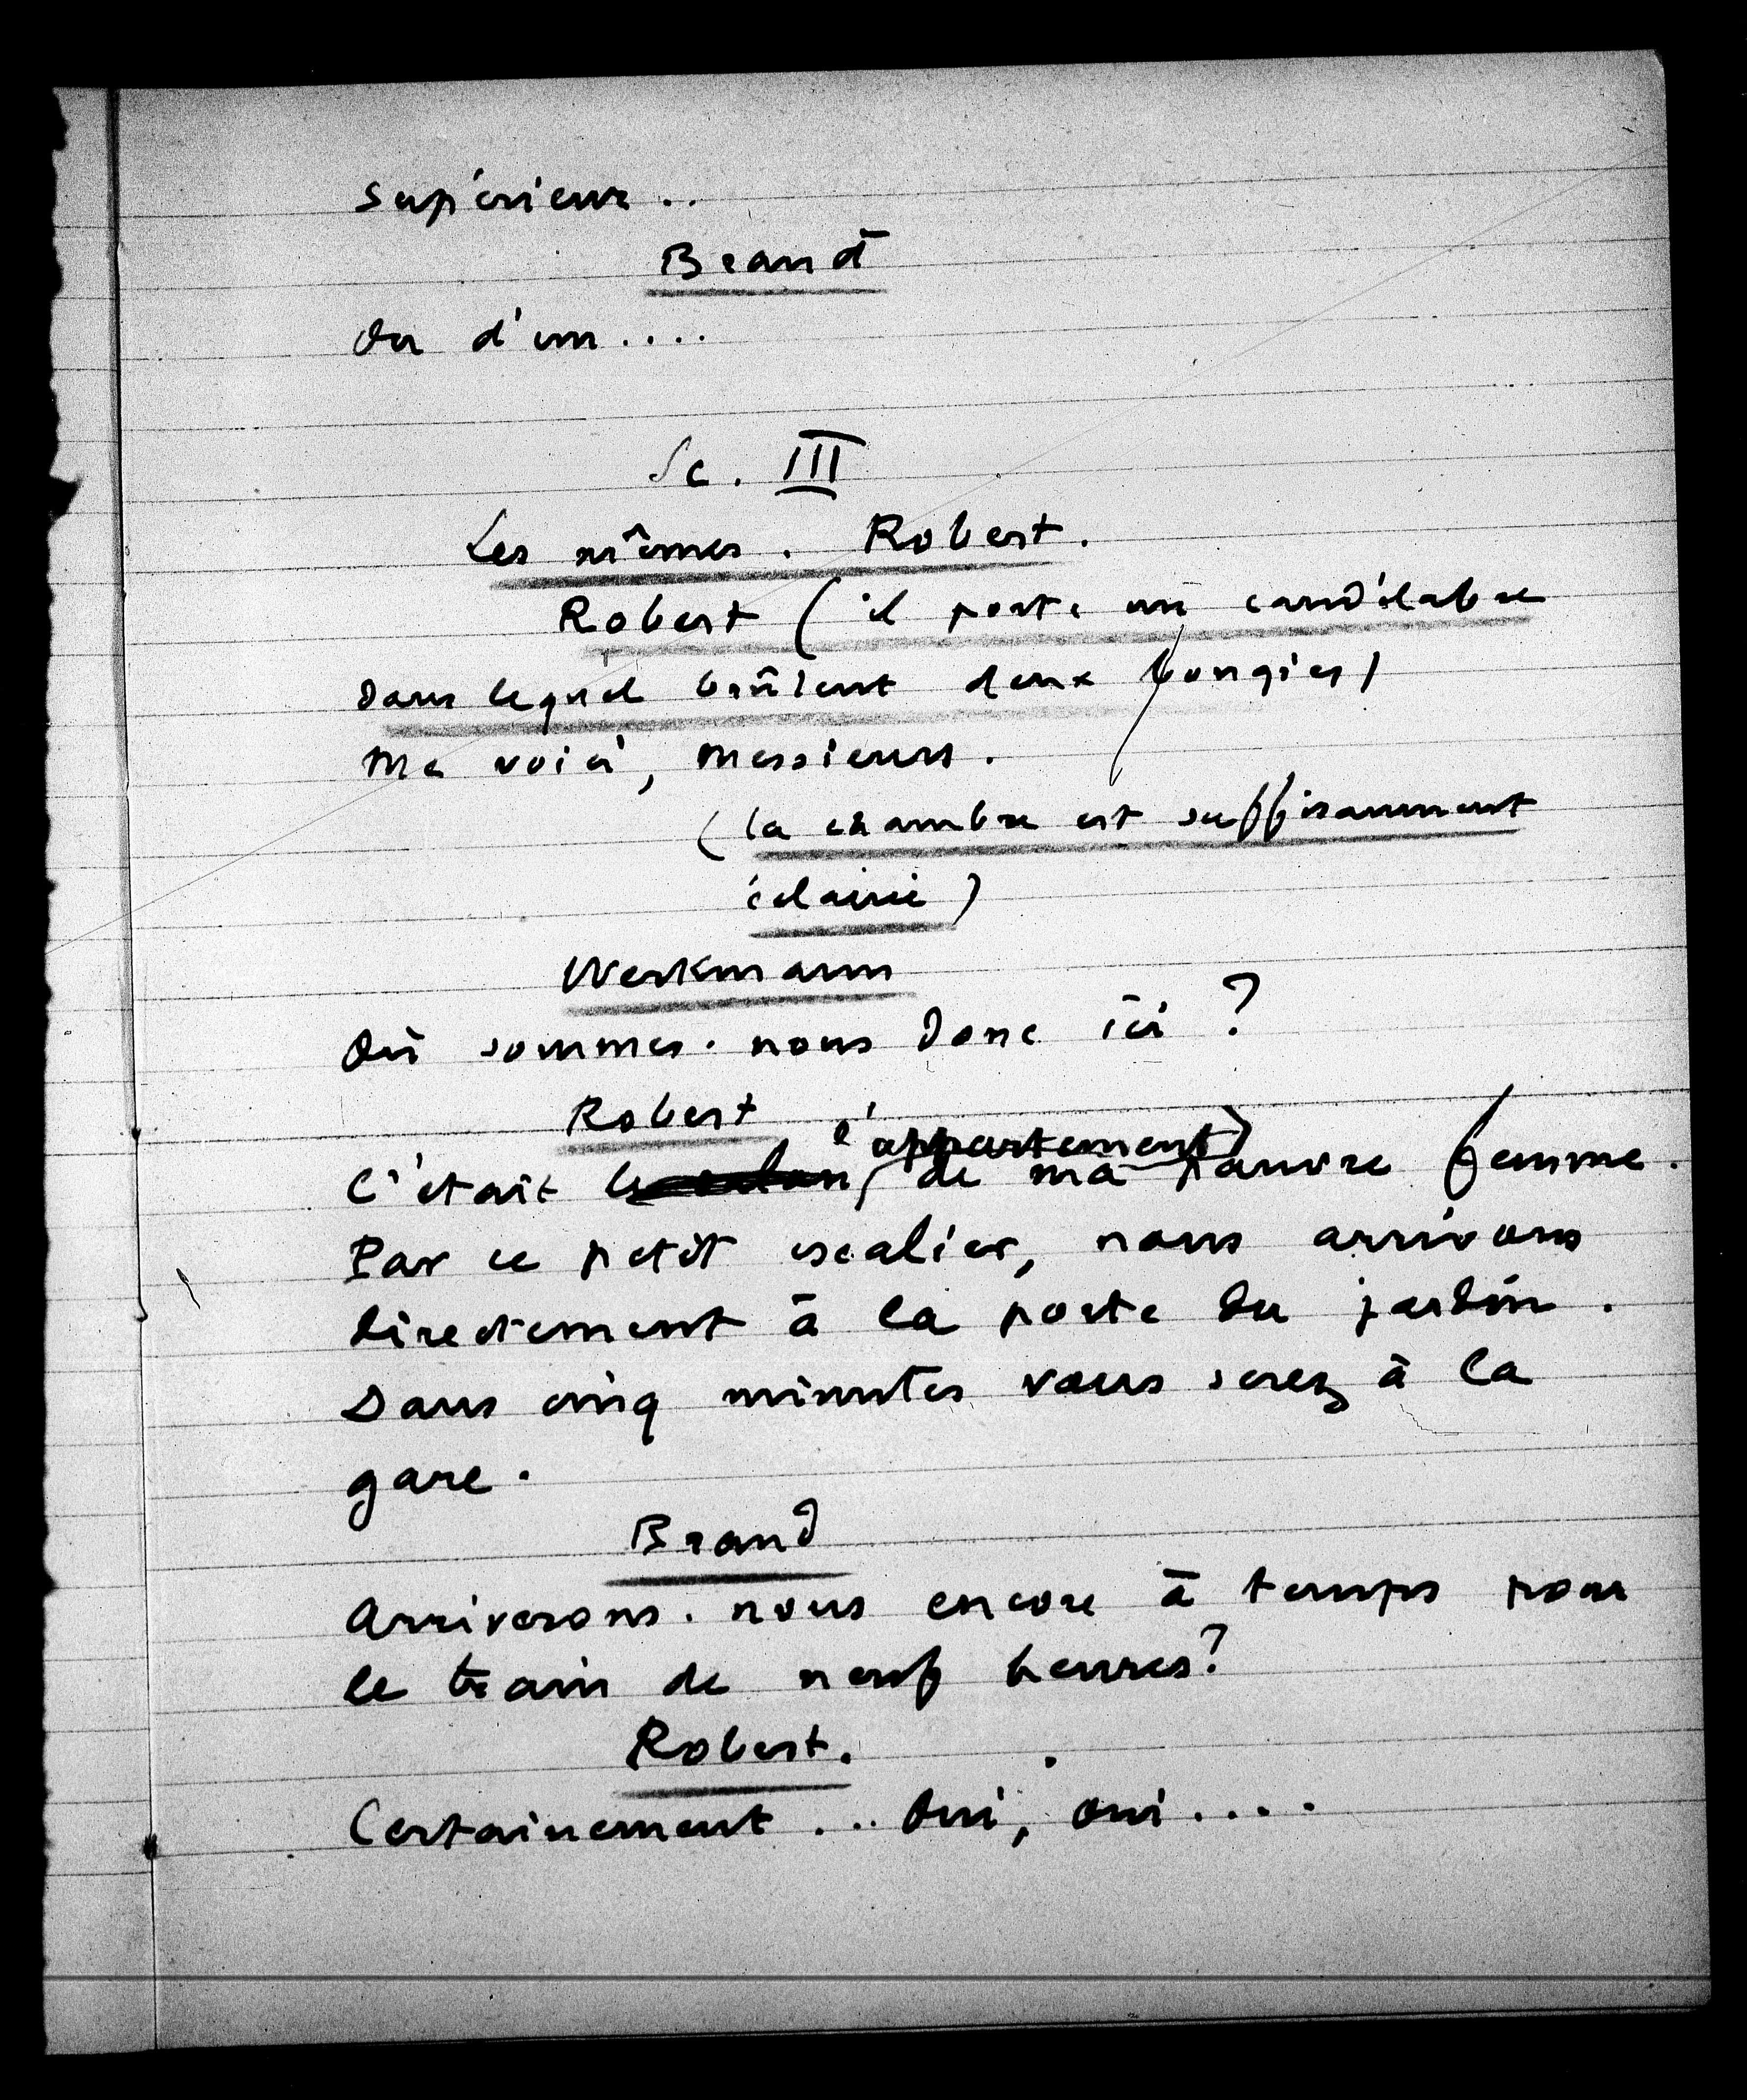 supérieur..
Brand
Ou d'un....
Sc. III
Les mêmes. Robert.
Robert (il porte un candélabre
dans lequel brûlent deux bougies)
Me voici, messieurs.
(la chambre est suffisamment
éclairée)
Werkmann
Où sommes-nous donc ici ?
Robert
l'appartement
C'était le salon, de ma pauvre femme.
Par ce petit escalier, nous arrivons
directement à la porte du jardin.
Dans cinq minutes vous serez à la
gare.
Brand
Arriverons-nous encore à temps pour
le train de neuf heures?
Robert.
Certainement... Oui, oui....